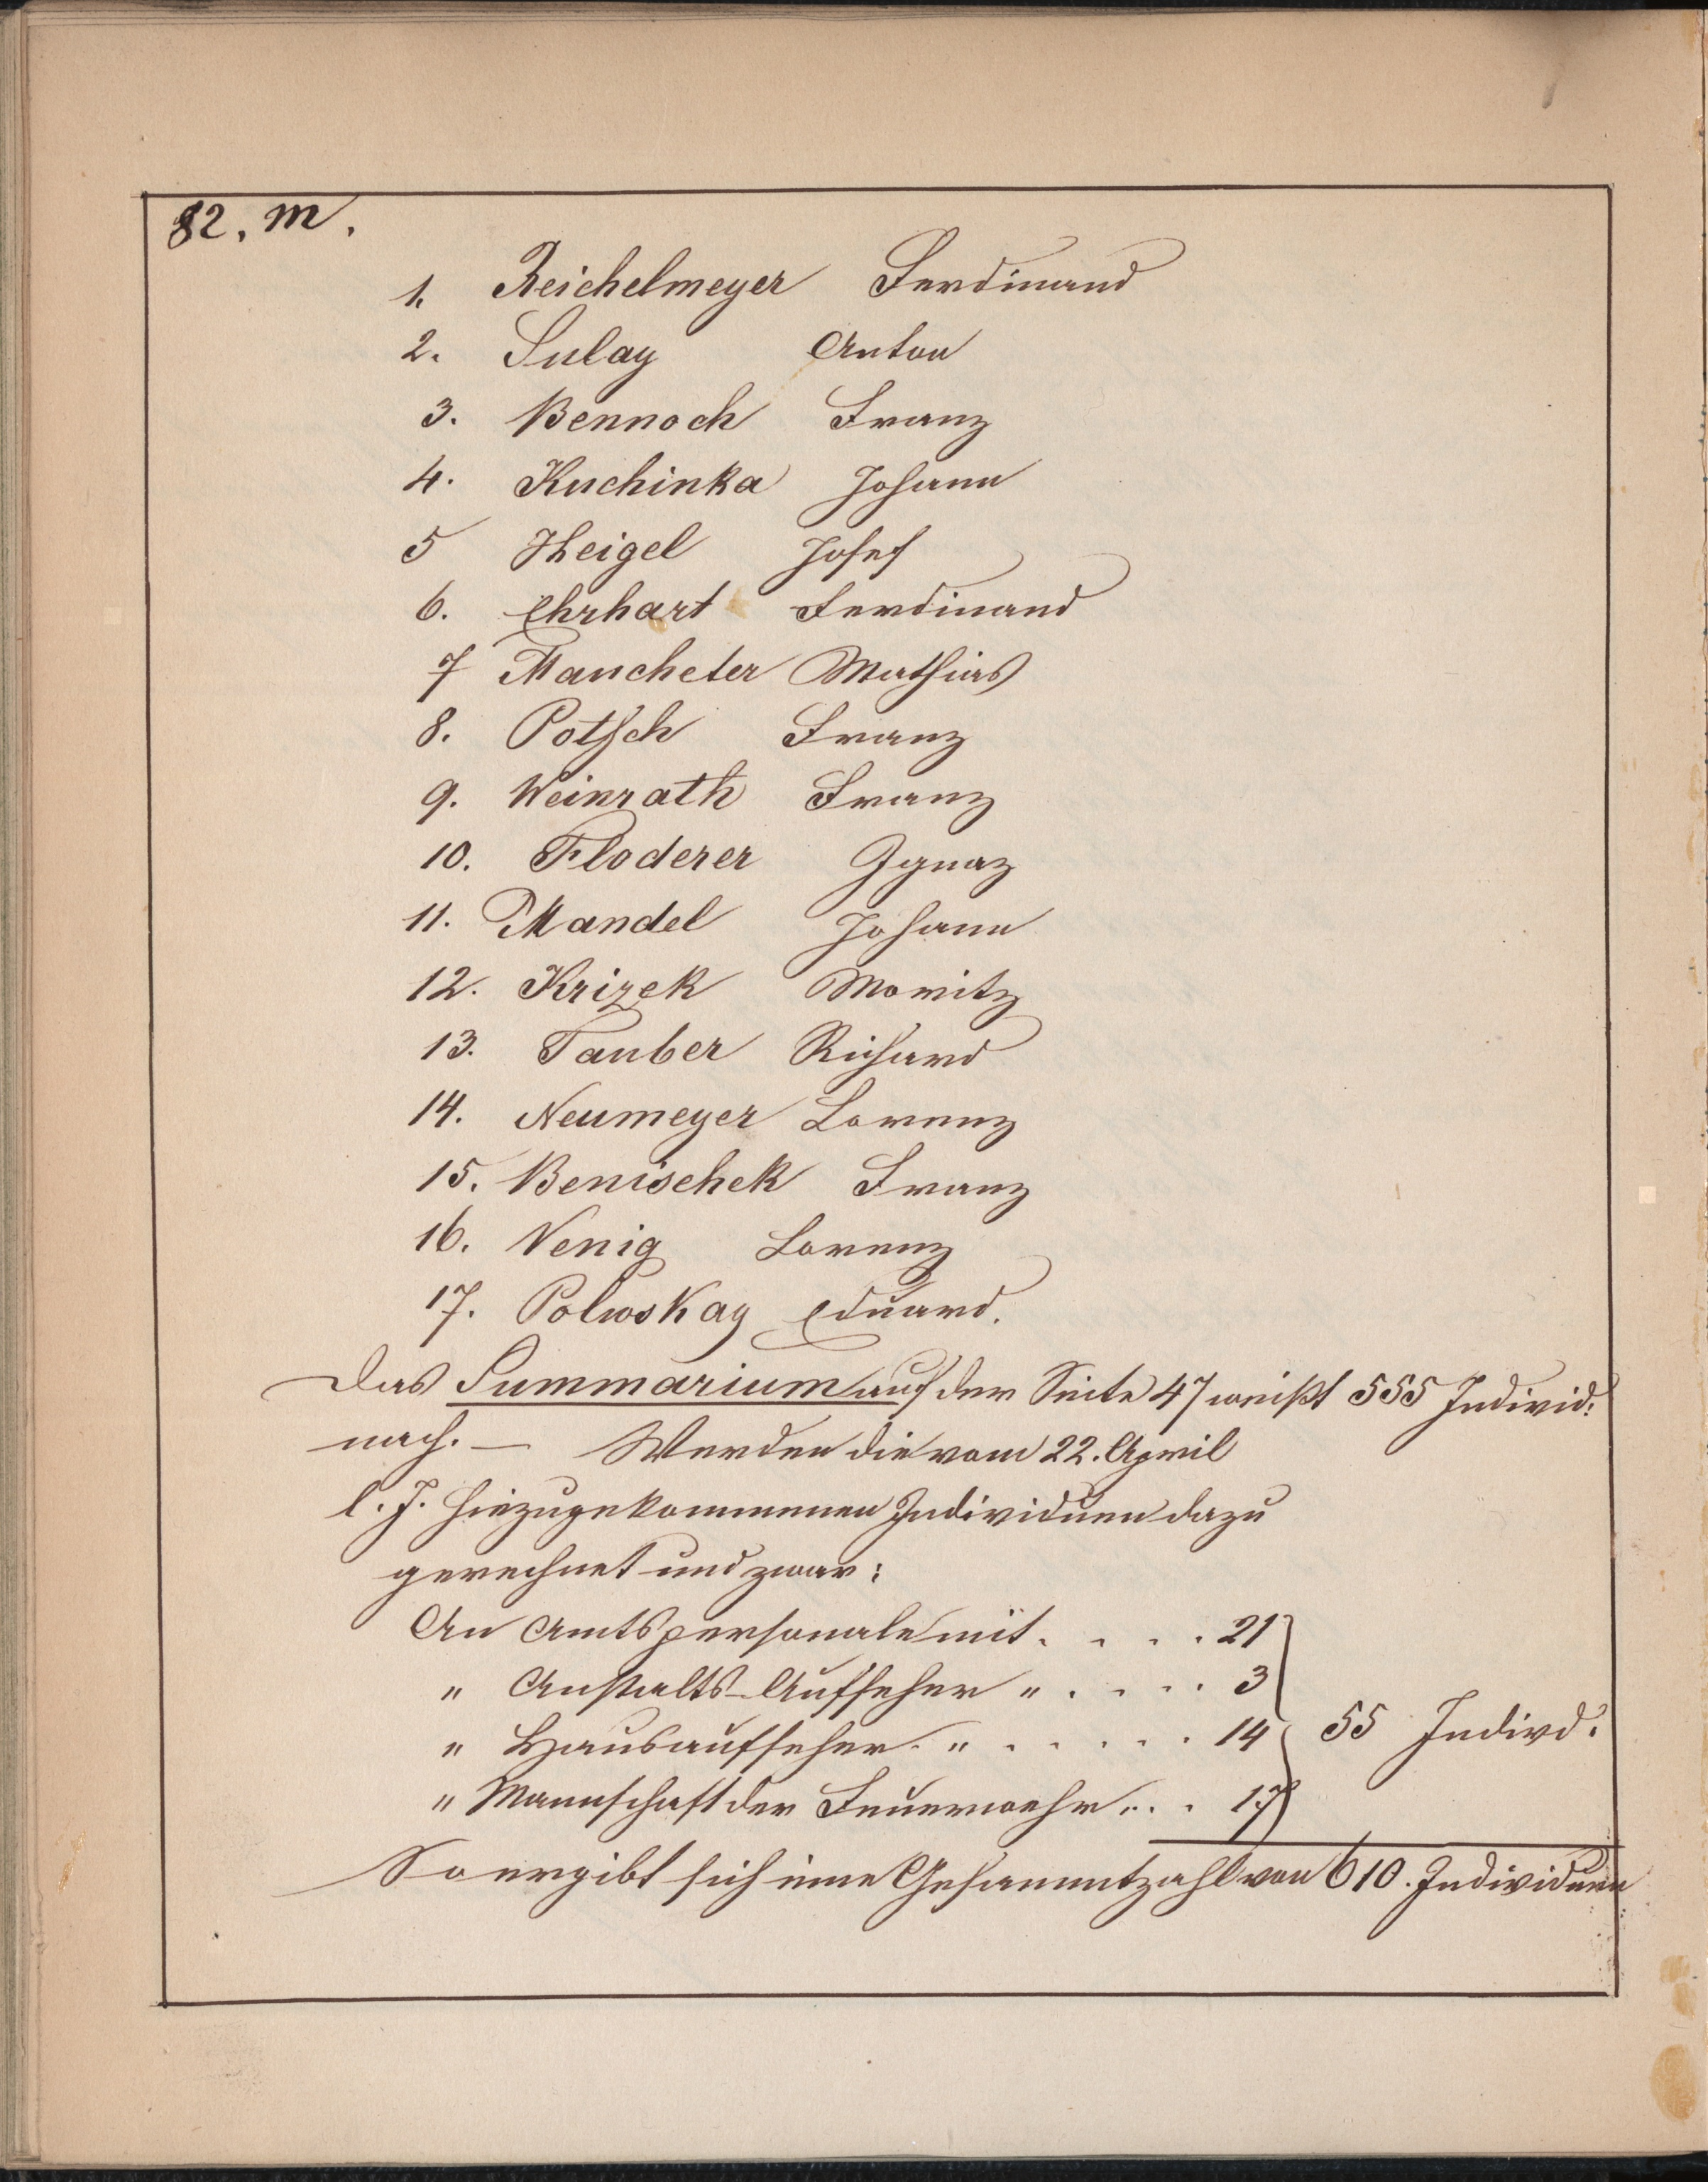 82. m.
1. Reichelmeyer Ferdinand
2. Sulay Anton
3. Bennoch Franz
4. Kuchinka Johann
5 Heigel Josef
6. Ehrhart Ferdinand
7 Maucheter Mathias
8. Potsch Franz
9. Weinrath Franz
10. Floderer Ignaz
11. Mandel Johann
12. Krizek Moritz
13. Tauber Richard
14. Neumeyer Lorenz
15. Benischek Franz
16. Nenig Lorenz
17. Polwskay Eduard.
Das Summarium auf der Seite 47 weißt 555 Individ:
nach. — Werden die vom 22. April
l. J. hinzugekommenen Individuen dazu
gerechnet und zwar:
An Amtspersonale mit . . . . 21
" Anstalts-Aufseher " . . . . 3
" Hausaufseher " . . . . . 14 } 55 Individ.
" Mannschaft der Feuerwehr " . . 17
So ergibt sich eine Gesammtzahl von 610. Individuen